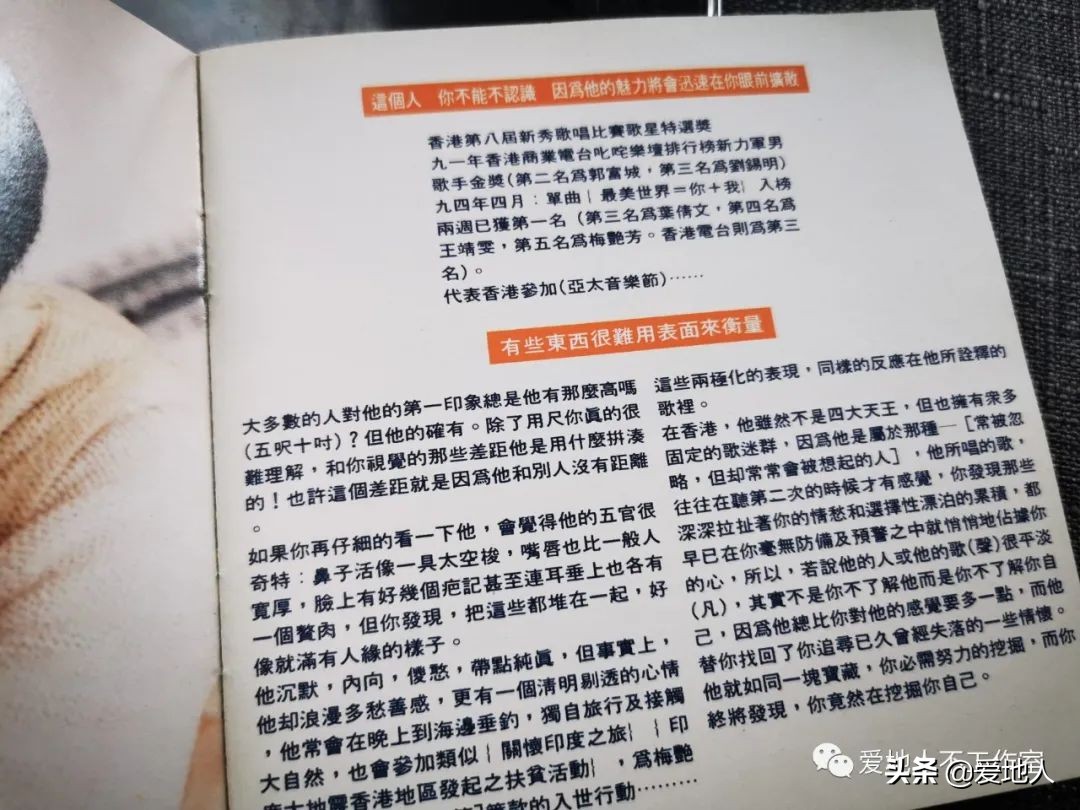 這個人　你不能不認識　因爲他的魅力將會迅速在你眼前擴散
香港第八屆新秀歌唱比賽歌星特選獎
九一年香港商業電台叱咤樂壇排行榜新力軍男
歌手金獎(第二名爲郭富城，第三名爲劉錫明)
九四年四月：單曲｜最美世界＝你＋我｜入榜
兩週已獲第一名（第三名爲葉倩文，第四名爲
王靖雯，第五名爲梅艷芳。香港電台則爲第三
名)。
代表香港參加(亞太音樂節)⋯⋯
有些東西很難用表面來衡量
大多數的人對他的第一印象總是他有那麼高嗎
(五呎十吋)？但他的確有。除了用尺你眞的很
難理解，和你視覺的那些差距他是用什麼拚湊
的！也許這個差距就是因爲他和別人沒有距離
。
如果你再仔細的看一下他，會覺得他的五官很
奇特：鼻子活像一具太空梭，嘴唇也比一般人
寬厚，臉上有好幾個疤記甚至連耳垂上也各有
一個贅肉，但你發現，把這些都堆在一起，好
像就滿有人緣的樣子。
他沉默，內向，傻憨，帶點純眞，但事實上，
他却浪漫多愁善感，更有一個淸明剔透的心情
，他常會在晚上到海邊垂釣，獨自旅行及接觸
大自然，也會參加類似｜關懷印度之旅｜｜印
度大地震香港地區發起之扶貧活動｜，爲梅艷
款的入世行動⋯⋯⋯
這些兩極化的表現，同樣的反應在他所詮釋的
歌裡。
在香港，他雖然不是四大天王，但也擁有衆多
固定的歌迷群，因爲他是屬於那種─［常被忽
略，但却常常會被想起的人］，他所唱的歌，
往往在聽第二次的時候才有感覺，你發現那些
深深拉扯著你的情愁和選擇性漂泊的累積，都
早已在你毫無防備及預警之中就悄悄地佔據你
的心，所以，若說他的人或他的歌(聲)很平淡
(凡)，其實不是你不了解他而是你不了解你自
己，因爲他總比你對他的感覺要多一點，而他
替你找回了你追尋已久曾經失落的一些情懷。
他就如同一塊寶藏，你必需努力的挖掘，而你
終將發現，你竟然在挖掘你自己。
爱地人不工作室
头条 @爱地人